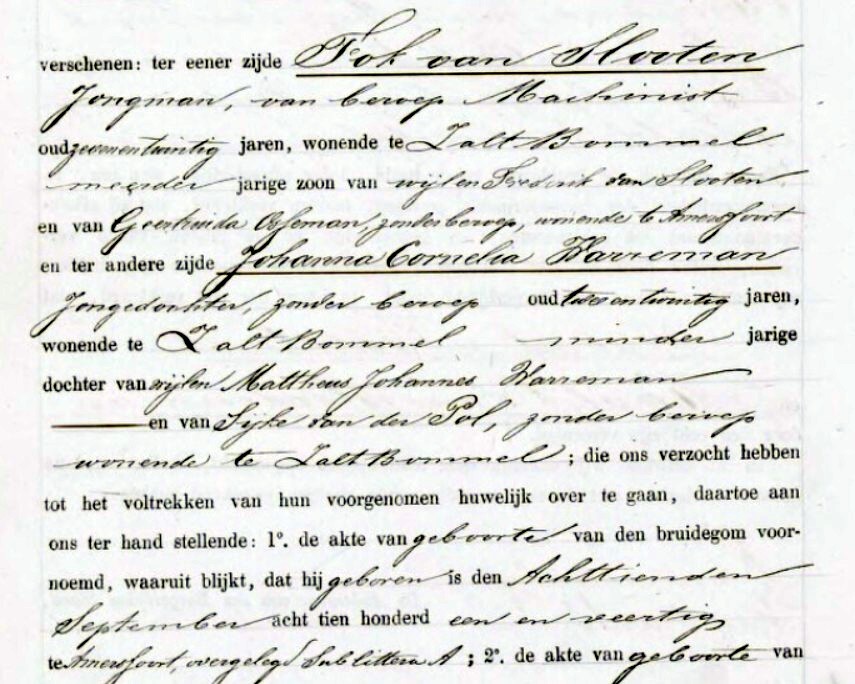 verschenen: ter eener zijde Fok van Slooten
Jongman, van beroep Machinist
oud zevenentwintig jaren, wonende te Zalt Bommel
meerder jarige zoon van wijlen Frederik van Slooten
en van Geertruida Osseman, zonder beroep, wonende te Amersfoort
en ter andere zijde Johanna Cornelia Warreman
Jongedochter, zonder beroep oud twee en twintig jaren,
wonende te Zalt Bommel minder jarige
dochter van wijlen Mattheus Johannes Warreman
en van Sijke van der Pol, zonder beroep
wonende te Zalt Bommel; die ons verzocht hebben
tot het voltrekken van hun voorgenomen huwelijk over te gaan, daartoe aan
ons ter hand stellende: 1°. de akte van geboorte van den bruidegom voor-
noemd, waaruit blijkt, dat hij geboren is den Achttienden
September acht tien honderd een en veertig
te Amersfoort, overgelegd sub littera A; 2°. de akte van geboorte van